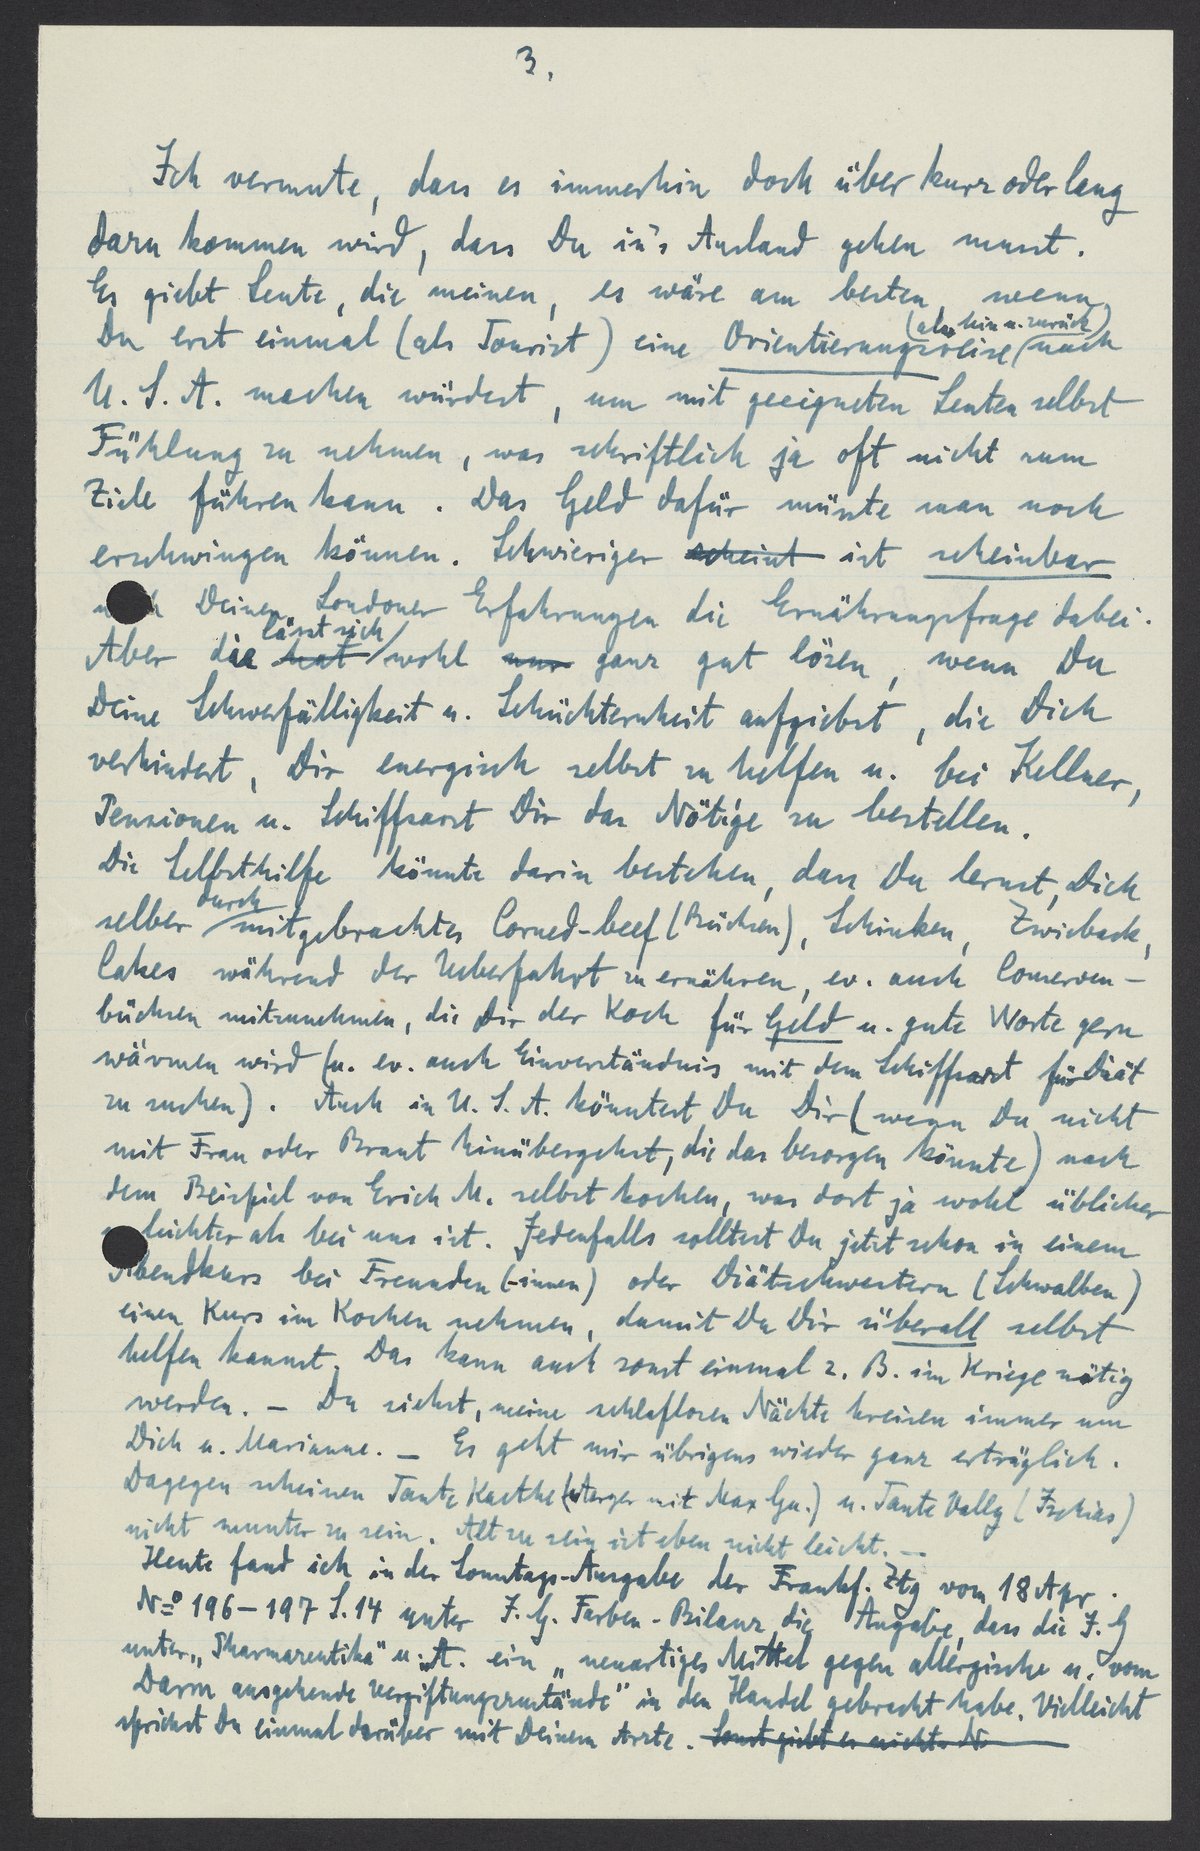 3.
Ich vermute, dass es immerhin doch über kurz oder lang
dazu kommen wird, dass Du in's Ausland gehen musst.
Es giebt Leute, die meinen, es wäre am besten, wenn
Du erst einmal (als Tourist) eine Orientierungsreise (also hin u. zurück) nach
U. S. A. machen würdest, um mit geeigneten Leuten selbst
Fühlung zu nehmen, was schriftlich ja oft nicht zum
Ziele führen kann. Das Geld dafür müsste man noch
erschwingen können. Schwieriger scheint ist scheinbar
nach Deinen Londoner Erfahrungen die Ernährungsfrage dabei.
Aber die hat lässt sich wohl nur ganz gut lösen, wenn Du
Deine Schwerfälligkeit u. Schüchternheit aufgiebst, die Dich
verhindert, Dir energisch selbst zu helfen u. bei Kellner,
Pensionen u. Schiffsarzt Dir das Nötige zu bestellen.
Die Selbsthilfe könnte darin bestehen, dass Du lernst, Dich
selber durch mitgebrachtes Corned-beef (Büchsen), Schinken, Zwieback,
Cakes während der Ueberfahrt zu ernähren, ev. auch Conserven-
büchsen mitzunehmen, die Dir der Koch für Geld u. gute Worte gern
wärmen wird (u. ev. auch Einverständnis mit dem Schiffsarzt für Diät
zu suchen). Auch in U. S. A. könntest Du Dir (wenn Du nicht
mit Frau oder Braut hinübergehst, die das besorgen könnte) nach
dem Beispiel von Erich M. selbst kochen, was dort ja wohl üblicher
leichter als bei uns ist. Jedenfalls solltest Du jetzt schon in einem
Abendkurs bei Freunden (-innen) oder Diätschwestern (Schwalben)
einen Kurs im Kochen nehmen, damit Du Dir überall selbst
helfen kannst. Das kann auch sonst einmal z. B. im Kriege nötig
werden. – Du siehst, meine schlaflosen Nächte kreisen immer um
Dich u. Marianne. – Es geht mir übrigens wieder ganz erträglich.
Dagegen scheinen Tante Kaethe (Aerger mit Max Gu.) u. Tante Vally (Ischias)
nicht munter zu sein. Alt zu sein ist eben nicht leicht. –
Heute fand ich in der Sonntags-Ausgabe der Frankf. Ztg vom 18 Apr.
No 196–197 S. 14 unter J. G. Farben-Bilanz die Angabe, dass die J. G
unter „Pharmazeutika" u. A. ein „neuartiges Mittel gegen allergische u. vom
Darm ausgehende Vergiftungszustände" in den Handel gebracht habe. Vielleicht
sprichst Du einmal darüber mit Deinem Arzte. Sonst giebt es nichts N